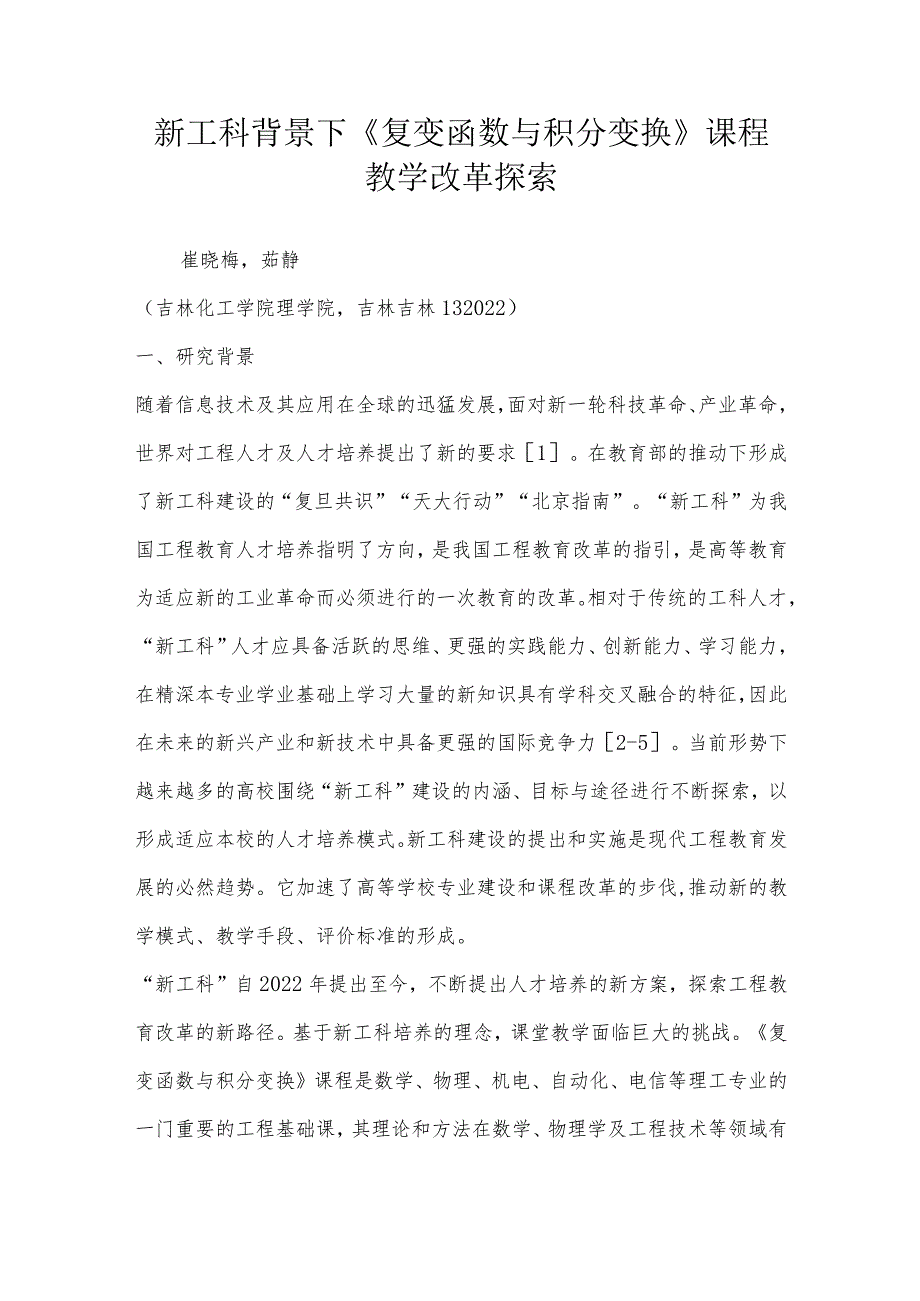 新工科背景下《复变函数与积分变换》课程
教学改革探索
崔晓梅，茹静
（吉林化工学院理学院，吉林吉林132022）
一、研究背景
随着信息技术及其应用在全球的迅猛发展，面对新一轮科技革命、产业革命，
世界对工程人才及人才培养提出了新的要求［1］。在教育部的推动下形成
了新工科建设的“复旦共识”“天大行动”“北京指南”。“新工科”为我
国工程教育人才培养指明了方向，是我国工程教育改革的指引，是高等教育
为适应新的工业革命而必须进行的一次教育的改革。相对于传统的工科人才，
“新工科”人才应具备活跃的思维、更强的实践能力、创新能力、学习能力，
在精深本专业学业基础上学习大量的新知识具有学科交叉融合的特征，因此
在未来的新兴产业和新技术中具备更强的国际竞争力［2-5］。当前形势下
越来越多的高校围绕“新工科”建设的内涵、目标与途径进行不断探索，以
形成适应本校的人才培养模式。新工科建设的提出和实施是现代工程教育发
展的必然趋势。它加速了高等学校专业建设和课程改革的步伐,推动新的教
学模式、教学手段、评价标准的形成。
“新工科”自2022年提出至今，不断提出人才培养的新方案，探索工程教
育改革的新路径。基于新工科培养的理念，课堂教学面临巨大的挑战。《复
变函数与积分变换》课程是数学、物理、机电、自动化、电信等理工专业的
一门重要的工程基础课，其理论和方法在数学、物理学及工程技术等领域有